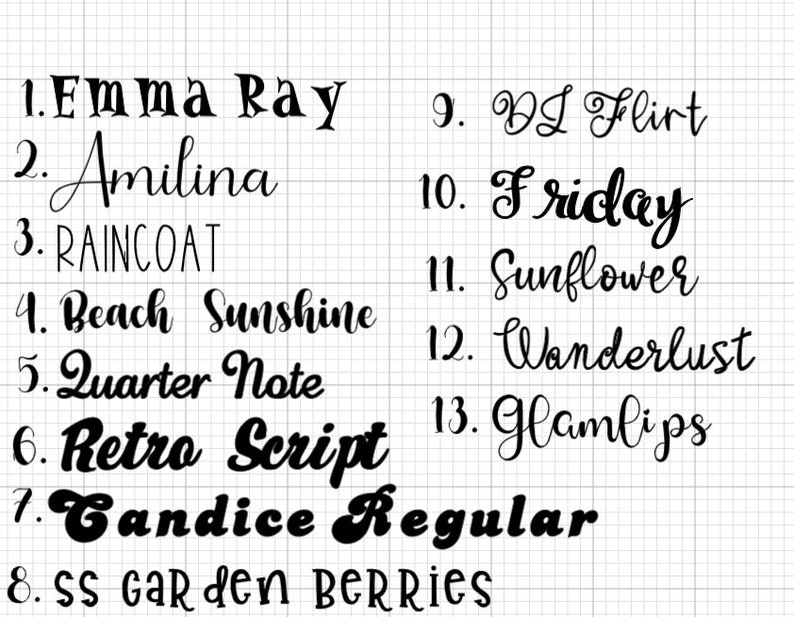 1. Emma Ray
2. Amilina
3. RAINCOAT
4. Beach Sunshine
5. Quarter Note
6. Retro Script
7. Candice Regular
8. SS GaRden BeRRies
9. DJ Flirt
10. Friday
11. Sunflower
12. Wanderlust
13. Glamlips